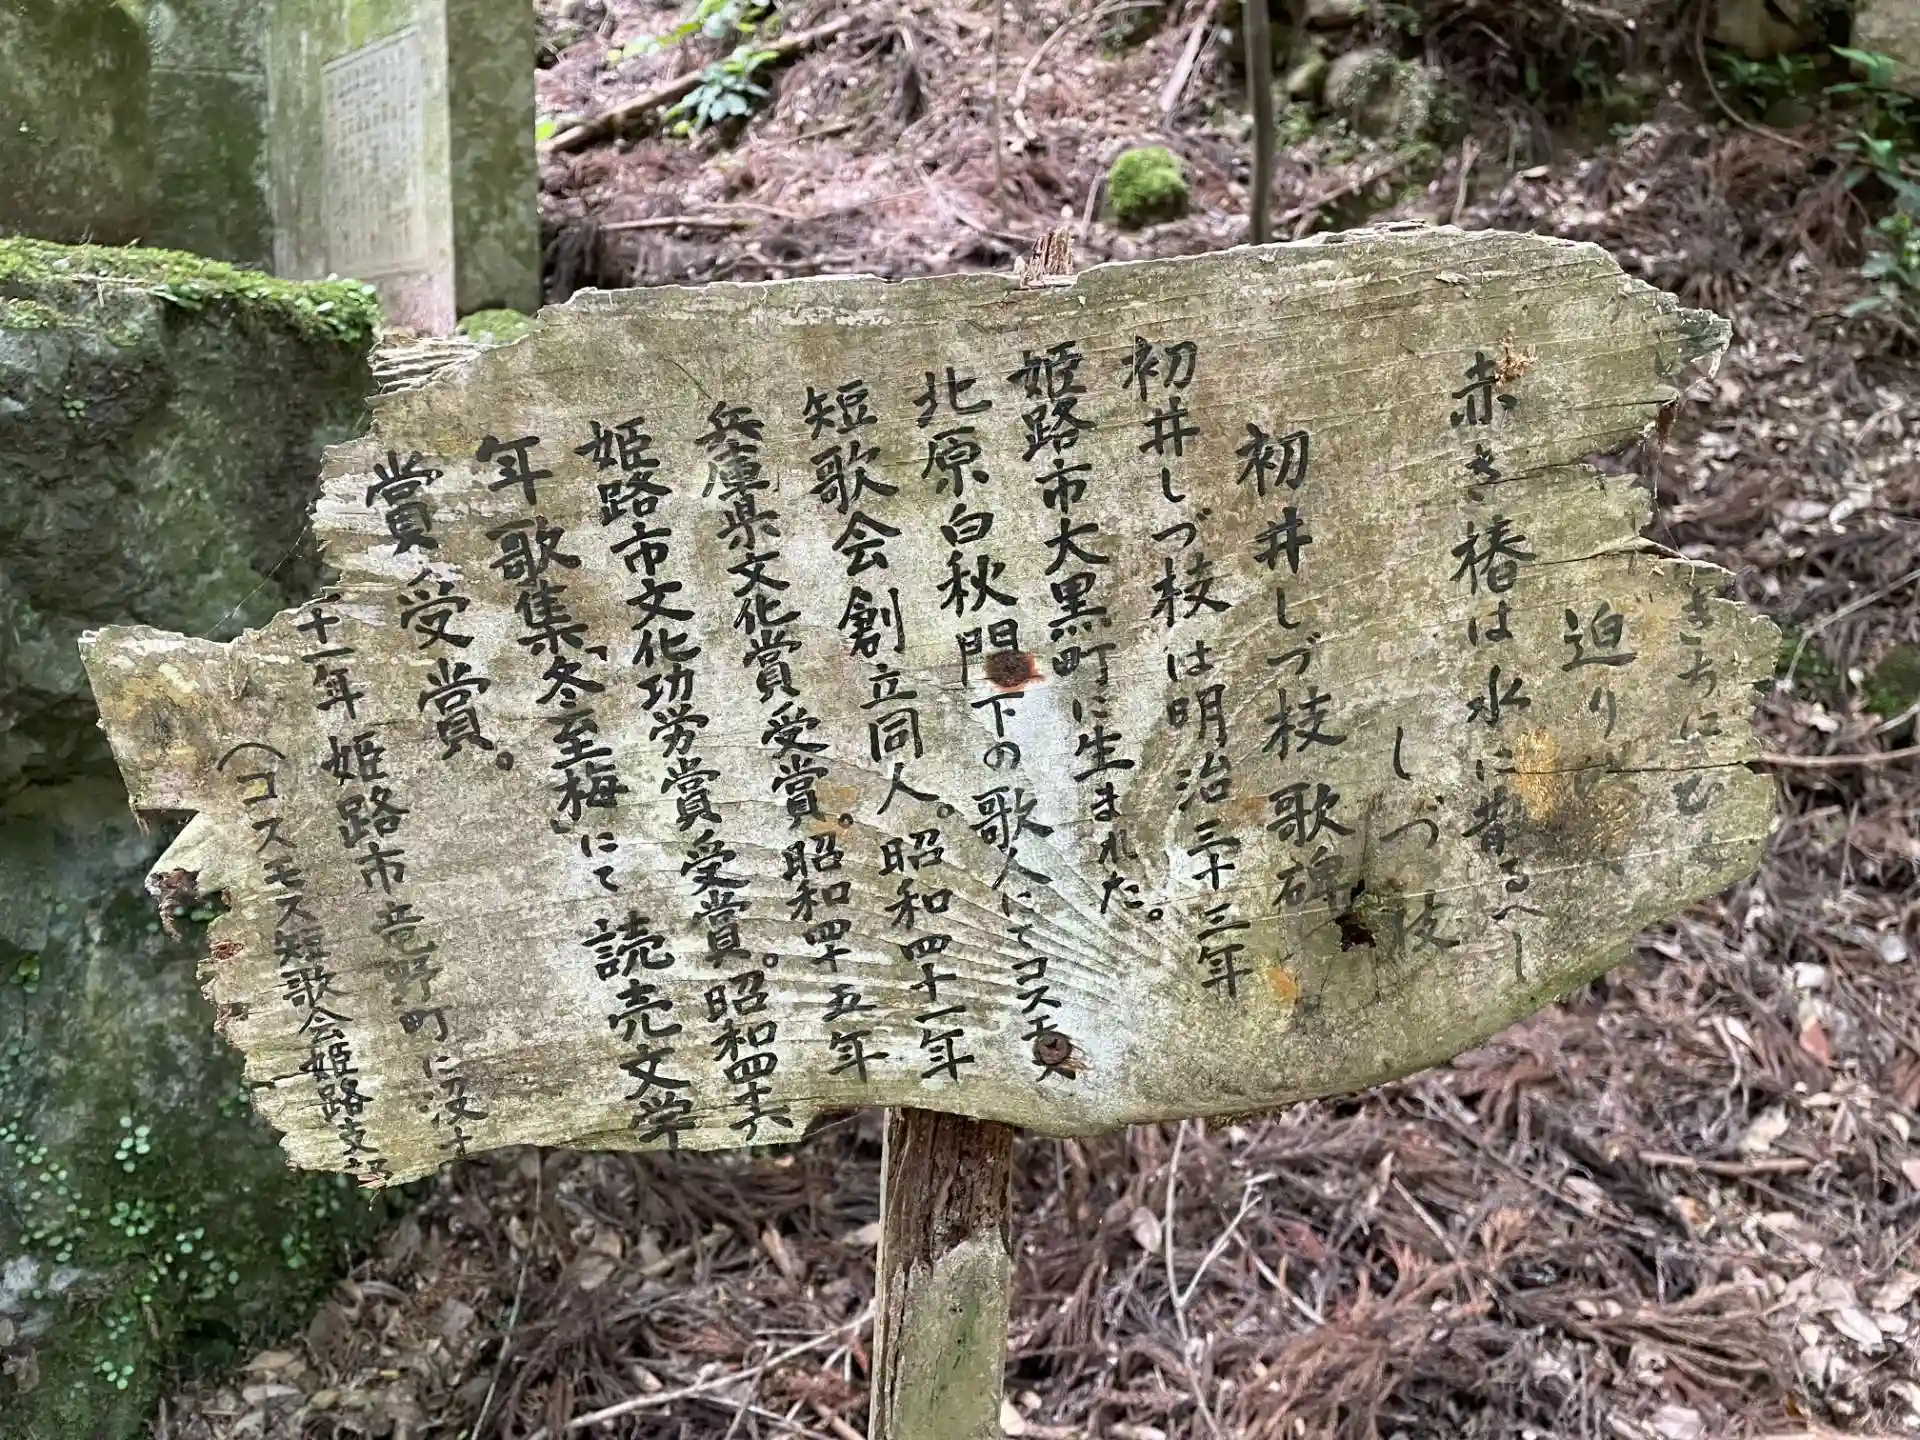 きちにひ
迫り
赤き椿は水に散るべし
しづ枝
初井しづ枝歌碑
初井しづ枝は明治三十三年
姫路市大黒町に生まれた。
北原白秋門下の歌人にてコスモス
短歌会創立同人。昭和四十一年
兵庫県文化賞受賞。昭和四十五年
姫路市文化功労賞受賞。昭和四十六
年歌集「冬至梅」にて読売文学
賞受賞。
十一年姫路市竜野町に没す
(コスモス短歌会姫路支部